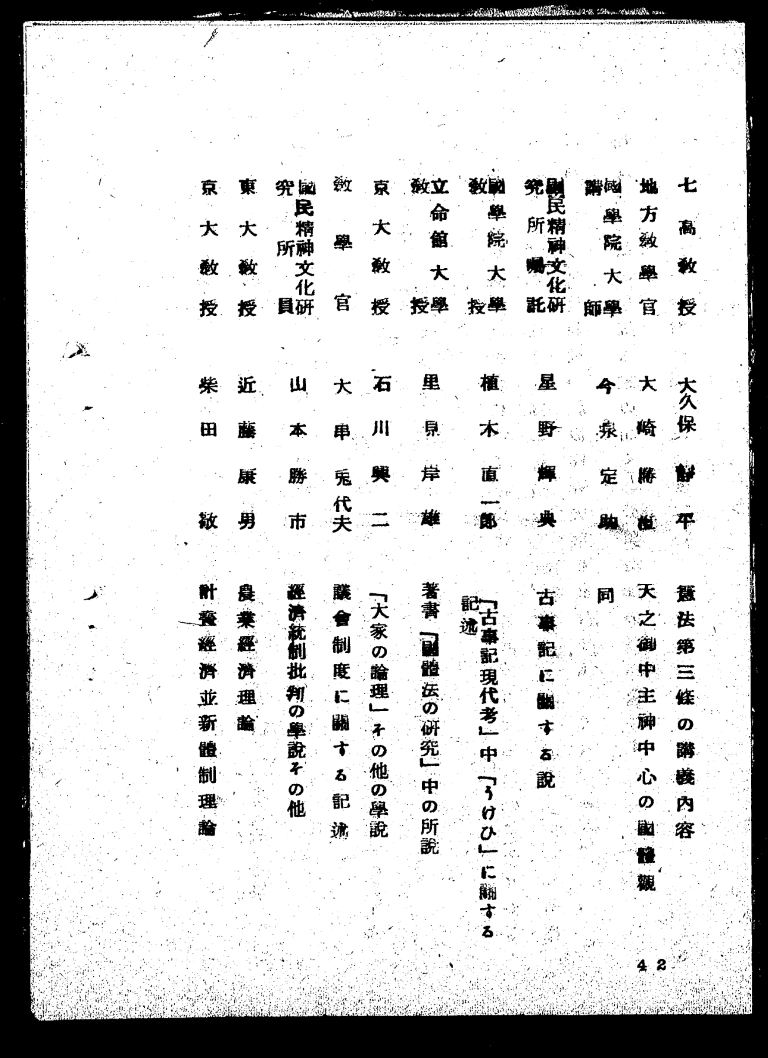 七高教授 大久保 靜平 憲法第三條の講義内容
地方敎學官 大崎勝 天之御中主神中心の國體觀
國學院大學講師 今泉定助 同
國民精神文化研究所囑託 星野輝興 古事記に關する說
國學院大學敎授 植木直一郎 「古事記現代考」中「うけひ」に關する記述
立命館大學敎授 里見岸雄 著書「國體法の研究」中の所說
京大敎授 石川興二 「大家の論理」その他の學說
敎學官 大串兎代夫 議會制度に關する記述
國民精神文化研究所員 山本勝市 經濟統制批判の學說その他
東大敎授 近藤康男 農業經濟理論
京大敎授 柴田敬 計畫經濟並新體制理論
42